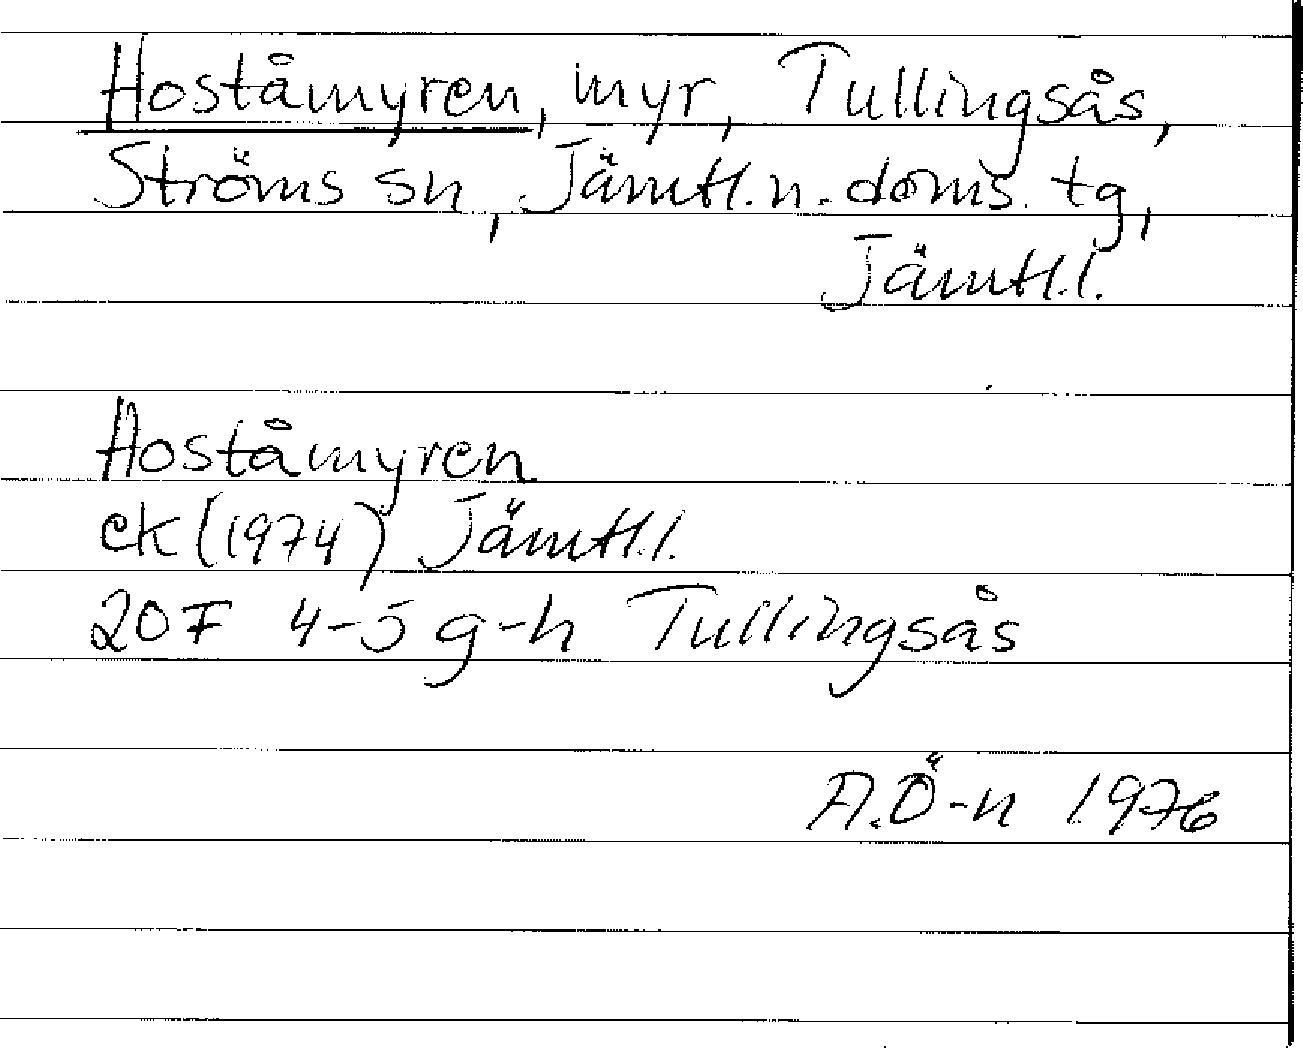 Hoståmyren, myr, Tullingsås,
Ströms sn, Jämtl. n. doms. tg,
Jämtl. l.
Hoståmyren
ek (1974) Jämtl. l.
20F 4-5 g-h Tullingsås
A.Ö-n 1976